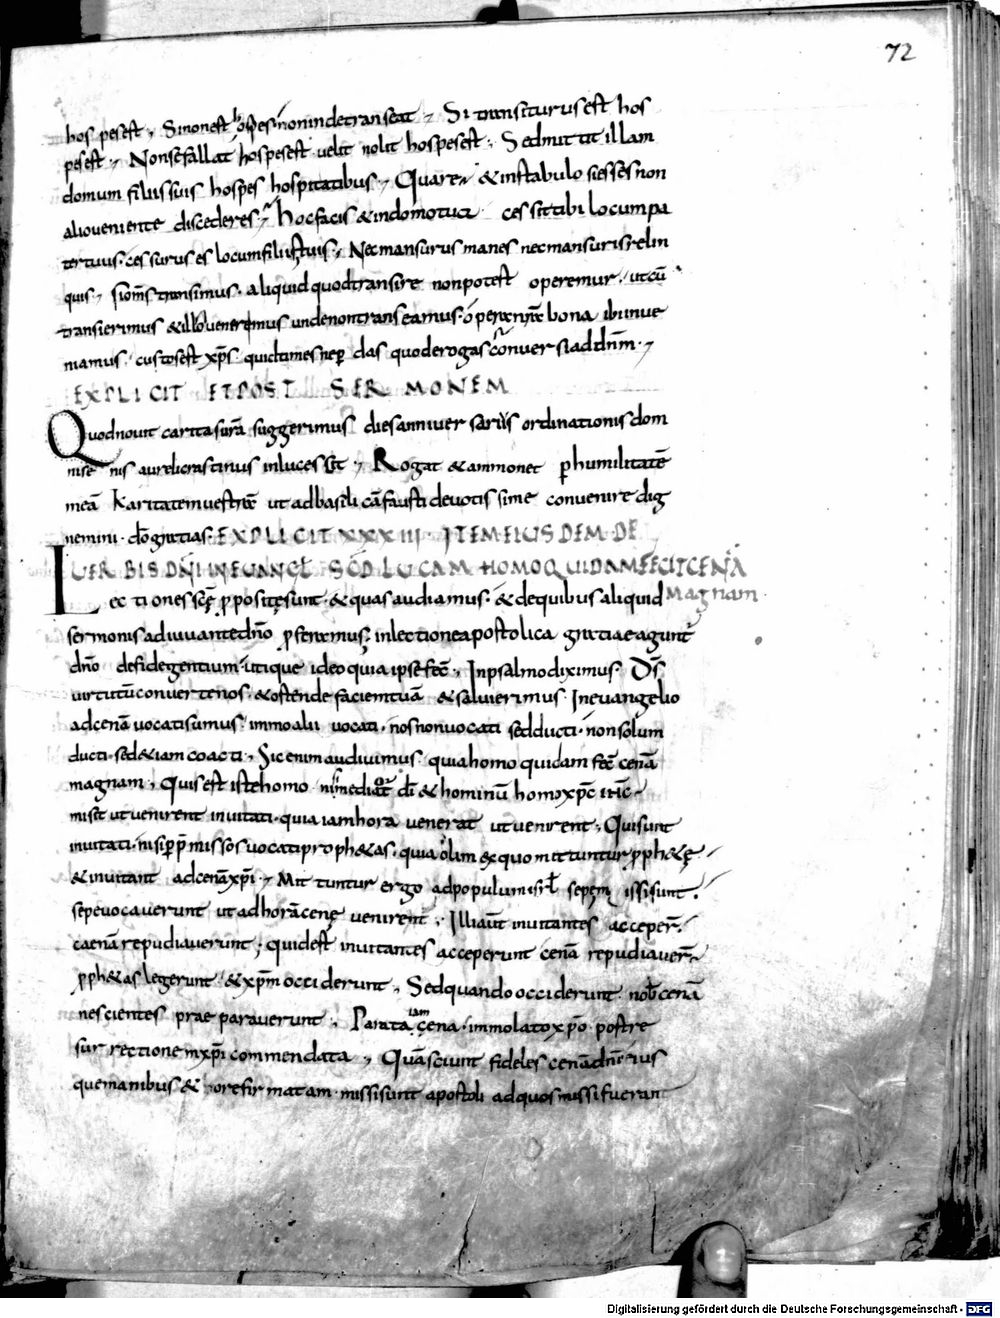 72
hospesest, Sinonest hospes nonindetranseat, Sitransiturusest hos
pesest, Nonsefallat hospesest. velit nolit hospesest, Sedmittit illam
domum filiissuis hospes hospitatibus, Quare, &instabulo siessesnon
alioveniente discederes, hocfacis &indomotua cessittibi locumpa
tertuus. cessurus es locumfiliistuis, Necmansurus manes necmansurisrelin
quis, siom̄s transimus. aliquidquodtransire nonpotest operemur, utcū
transierimus &illo venerimus undenontranseamus. opera nr̄a bona ibi inve
niamus. custosest xp̄s quidtimes neper das quoderogas conversiaddn̄m,
EXPLICIT ETPOST SERMONEM
Quodnovit caritasvr̄a suggerimus diesanniversariis ordinationisdom
nise nis aureli crastinus inlucescit, Rogat &ammonet phumilitatē
meā karitatemvestrā ut adbasilicāfausti devotissime convenire dig
nemini. dōgratias. EXPLICIT XXXIII. ITEMEIUSDEM. DE
UERBISDN̄I INEUANGL̄ SCD̄ LUCAM HOMOQUIDAMFECITCENĀ
Magnam
Lectionessc̄ę ppositęsunt. &quasaudiamus. &dequibusaliquid
sermonisadiuvantedn̄o pferamus, inlectioneapostolica gratiaeagunt̄
dn̄o defidegentium. utique ideoquia ipsefec̄, Inpsalmodiximus. Ds̄
virtutūconvertenos. &ostende faciemtuā &salvierimus. Inevangelio
adcenā vocatisumus. immoalii vocati. nosnonvocati sedducti. nonsolum
ducti. sed&iamcoacti, Sicenimaudivimus. quiahomo quidam fec̄ cenā
magnam, Quisest istehomo nisimediator dī &hominū homoxp̄c ih̄c.
misit utvenirent invitati. quia iamhora venerat utvenirent, Quisunt
invitati. nisippmissos vocatiproph&as. quia olim exquomittuntur pph&ę,
&invitant adcenāxpī, Mittuntur ergo adpopulumisrl̄ sepęm issisunt.
sepevocaverunt utadhorācenę venirent, Illiaut̄ invitantes acceper̄.
caenārepudiaverunt, quidest invitantes acceperunt cenā repudiaver̄
pph&aslegerunt. &xp̄moccid erunt, Sedquandooccid erunt. nob̄cenā
nescientes praeparaverunt, Parata iam cena. immolatoxp̄o. postre
surrectionemxpī commendata, Quāsciunt fideles cenādn̄i eius
quemanibus & orefirmatam. missisunt apostoli adquosmissifuerant
Digitalisierung gefördert durch die Deutsche Forschungsgemeinschaft - DFG